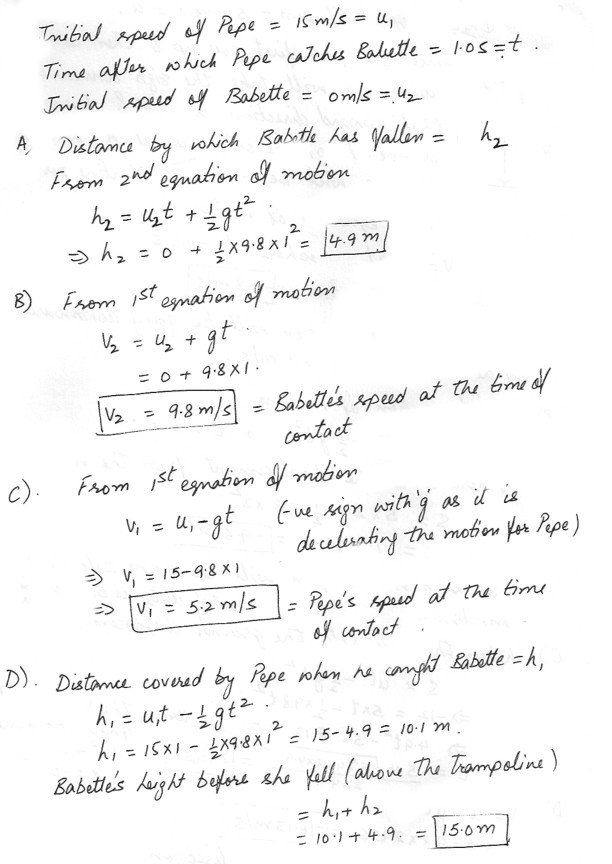 Initial speed of Pepe = 15 m/s = u₁
Time after which Pepe catches Babette = 1.0 s = t.
Initial speed of Babette = 0 m/s = u₂
A, Distance by which Babette has fallen = h₂
From 2nd equation of motion
h₂ = u₂t + ½gt²
⇒ h₂ = 0 + ½×9.8×1² = 4.9 m
B) From 1st equation of motion
V₂ = u₂ + gt
= 0 + 9.8×1.
V₂ = 9.8 m/s = Babette's speed at the time of
contact
C). From 1st equation of motion
V₁ = u₁-gt (-ve sign with 'g' as it is
decelerating the motion for Pepe)
⇒ V₁ = 15-9.8×1
⇒ V₁ = 5.2 m/s = Pepe's speed at the time
of contact.
D). Distance covered by Pepe when he caught Babette = h₁
h₁ = u₁t - ½gt².
h₁ = 15×1 - ½×9.8×1² = 15-4.9 = 10.1 m.
Babette's height before she fell (above the trampoline)
= h₁+h₂
= 10.1+4.9. = 15.0 m